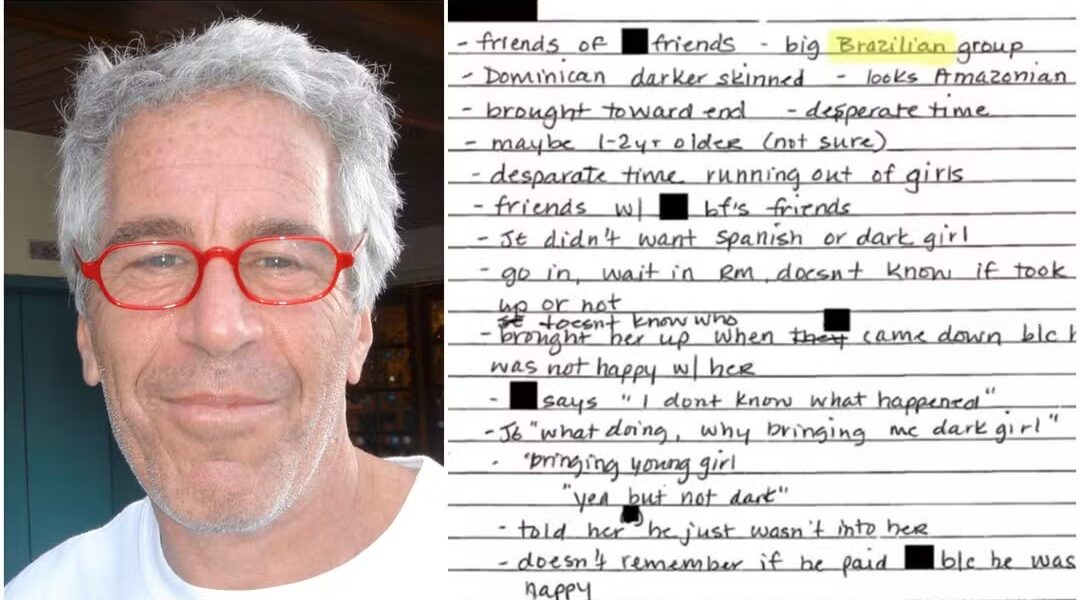 - friends of friends - big Brazilian group
- Dominican darker skinned - looks Amazonian
- brought toward end - desperate time
- maybe 1-2yr older (not sure)
- desparate time running out of girls
- friends w/ bf's friends
- JE didn't want Spanish or dark girl
- go in, wait in Rm, doesnt know if took
up or not
doesnt know who
- brought her up when they came down b/c h
was not happy w/ her
- says "I dont know what happened"
- JE "what doing, why bringing me dark girl"
- "bringing young girl
"yea but not dark"
- told her he just wasn't into her
- doesn't remember if he paid b/c he was
happy